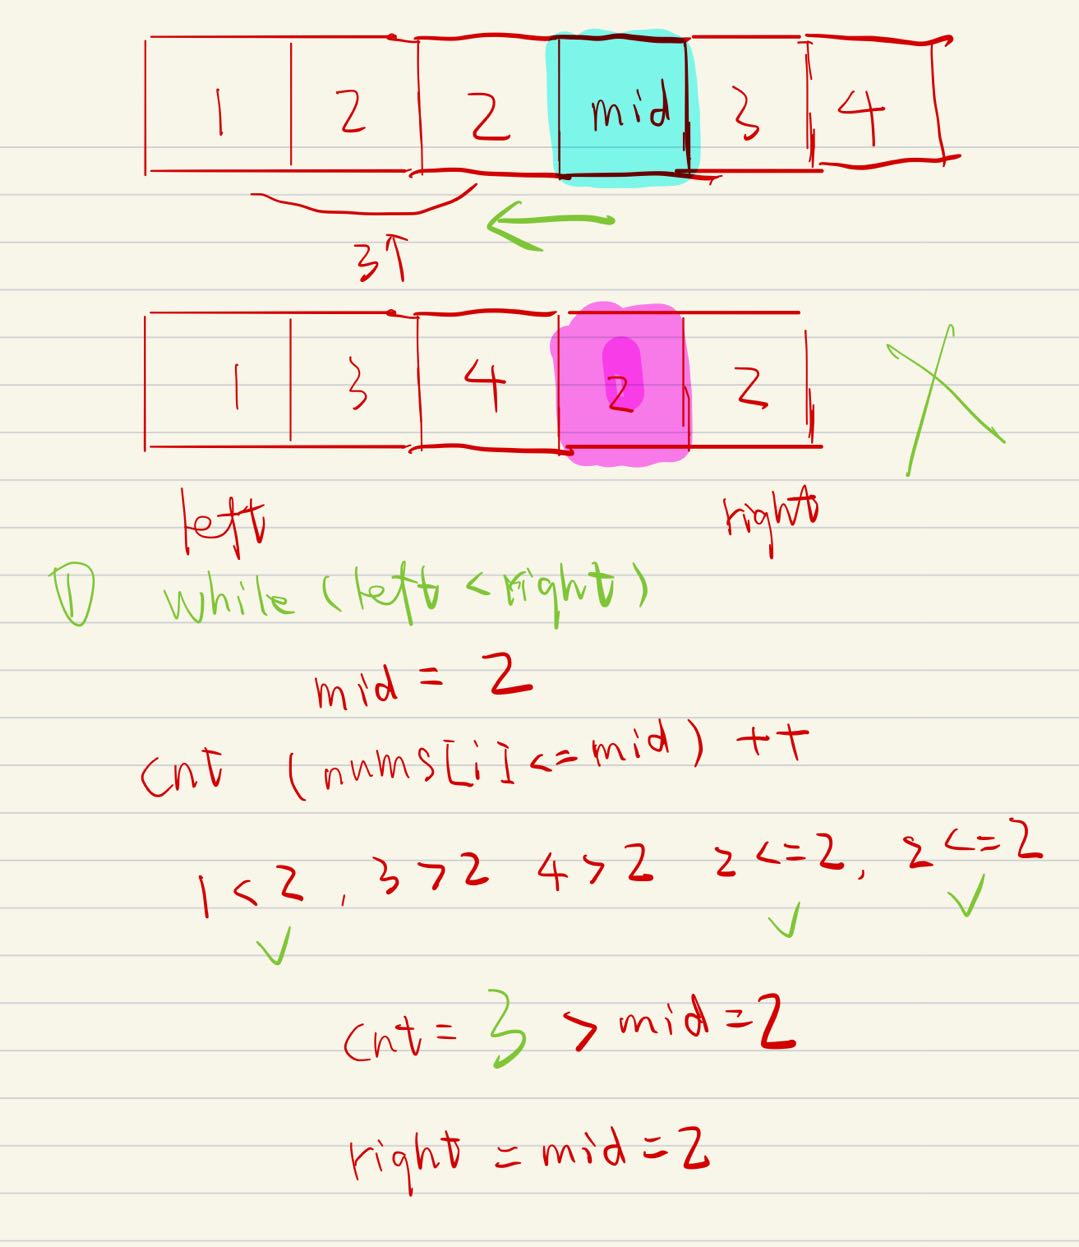 1 2 2 mid 3 4
3↑
1 3 4 2 2
left right
① while (left < right)
mid = 2
cnt (nums[i] <= mid) ++
1 < 2, 3 > 2 4 > 2 2 <= 2, 2 <= 2
✓ ✓ ✓
cnt = 3 > mid = 2
right = mid = 2